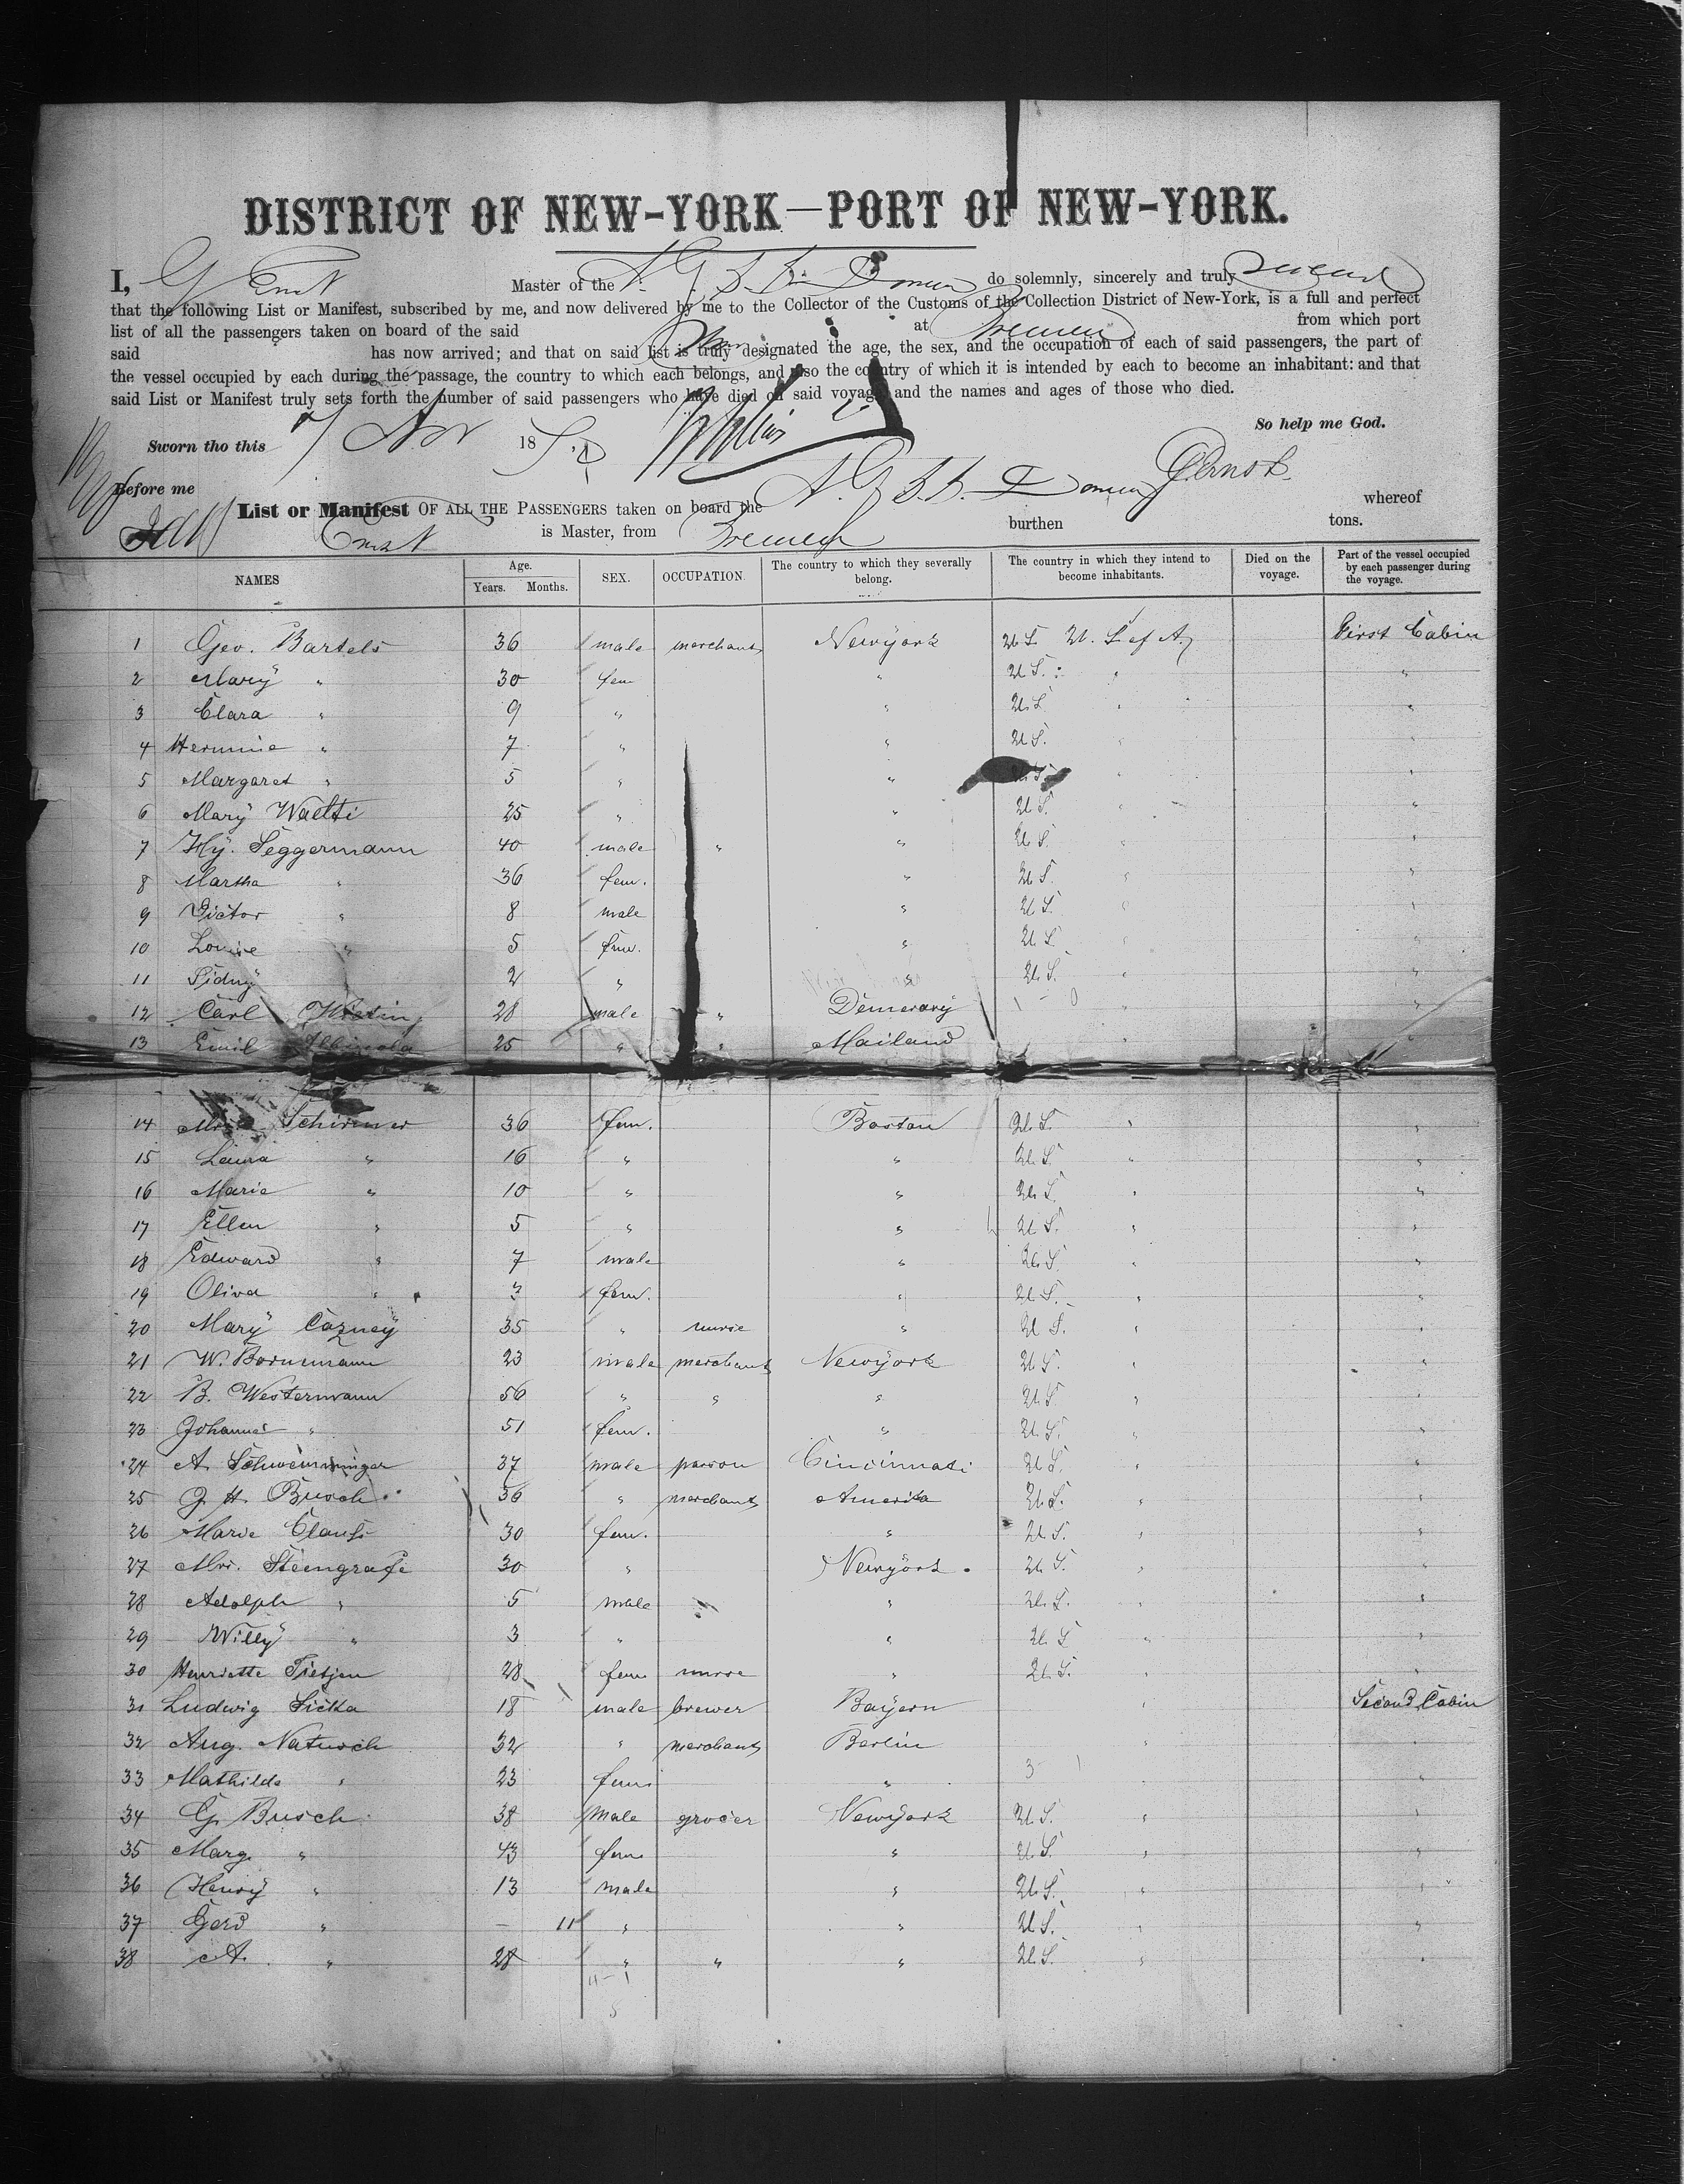 DISTRICT OF NEW-YORK—PORT OF NEW-YORK.
I, G Ernst Master of the N. G. S. Donau do solemnly, sincerely and truly swear
that the following List or Manifest, subscribed by me, and now delivered by me to the Collector of the Customs of the Collection District of New-York, is a full and perfect
list of all the passengers taken on board of the said at Bremen from which port
said has now arrived; and that on said list is truly designated the age, the sex, and the occupation of each of said passengers, the part of
the vessel occupied by each during the passage, the country to which each belongs, and also the country of which it is intended by each to become an inhabitant: and that
said List or Manifest truly sets forth the number of said passengers who have died on said voyage and the names and ages of those who died.
So help me God.
Sworn tho this 7 Nov 18
G Ernst.
Before me
List or Manifest OF ALL THE PASSENGERS taken on board the N. G. S. S. Donau whereof
Ernst is Master, from Bremen burthen tons.
NAMES Age. Years. Months. SEX. OCCUPATION. The country to which they severally belong. The country in which they intend to become inhabitants. Died on the voyage. Part of the vessel occupied by each passenger during the voyage.
1 Geo. Bartels 36 male merchant Newyork U S. U. S. of A. First Cabin
2 Mary " 30 fem " U S. " "
3 Clara " 9 " " U. S. " "
4 Hermine " 7 " " U S. " "
5 Margaret " 5 " " U. S. " "
6 Mary Waelti 25 " " U. S. " "
7 Hy. Seggermann 40 male " " U. S. " "
8 Martha " 36 fem. " U. S. " "
9 Victor " 8 male " U. S. " "
10 Louise " 5 fem. " U. S. " "
11 Sidny " 2 " " U. S. " "
12 Carl 28 male " Demerary " "
13 Emil 25 " " Mailand " "
14 Mrs. Schirmer 36 fem. Boston U. S. " "
15 Laura " 16 " " U. S. " "
16 Marie " 10 " " U. S. " "
17 Ellen " 5 " " U. S. " "
18 Edward " 7 male " U. S. " "
19 Oliva " 3 fem. " U. S. " "
20 Mary Cazney 35 " nurse " U. S. " "
21 W. Bornemann 23 male merchant Newyork U. S. " "
22 B. Westermann 56 " " " U. S. " "
23 Johanna " 51 fem. " U. S. " "
24 A. Schwenninger 37 male parson Cincinnati U. S. " "
25 G. H. Busch 36 " merchant Amerika U. S. " "
26 Marie Clauss 30 fem. " U. S. " "
27 Mrs. Steengrafe 30 " Newyork. U. S. " "
28 Adolph " 5 male " U. S. " "
29 Willy " 3 " " U. S. " "
30 Henriette Tietjen 28 fem nurse " U. S. " "
31 Ludwig Sicka 18 male brewer Bayern " Second Cabin
32 Aug. Natusch 32 " merchant Berlin " "
33 Mathilde " 23 fem " 3 " "
34 G. Busch 38 male grocer Newyork U. S. " "
35 Marg. " 43 fem " U. S. " "
36 Henry " 13 male " U. S. " "
37 Gerd " — 11 " " U. S. " "
38 A. " 28 " " " U. S. " "